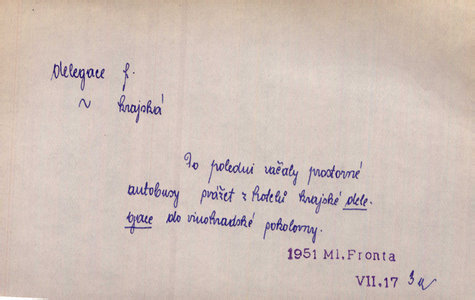 delegace f.
~ krajská
Po poledni začaly prostorné
autobusy svážet z hotelů krajské dele-
gace do vinohradské sokolovny.
1951 Ml.Fronta
VII.17